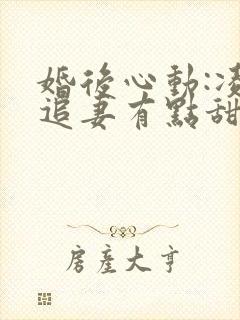 婚後心動:凌
追妻有點甜
房產大亨